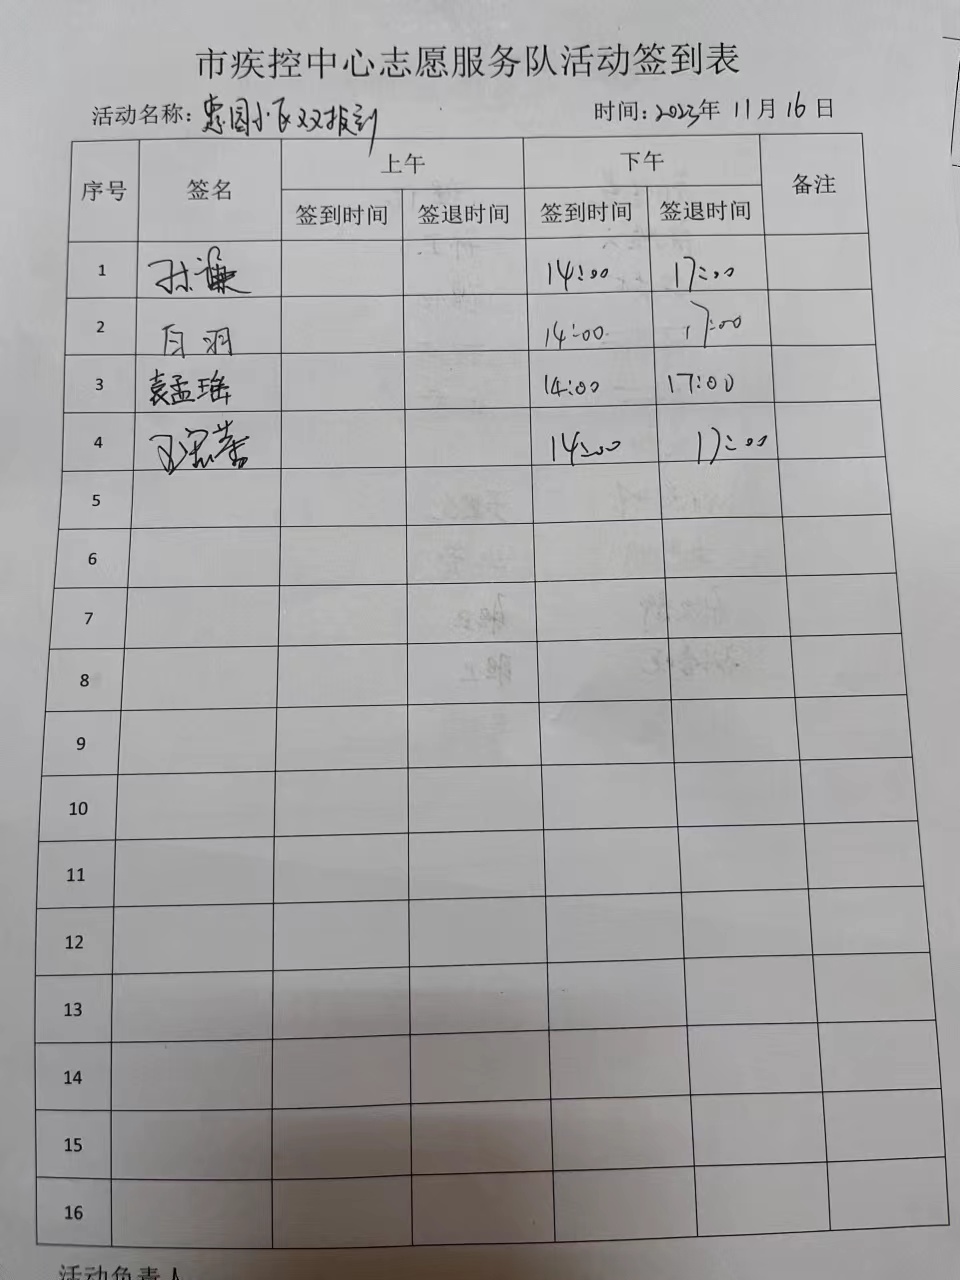 市疾控中心志愿服务队活动签到表
活动名称: 惠园小区双报到 时间: 2023年 11月 16日
序号 签名 上午 下午 备注
签到时间 签退时间 签到时间 签退时间
1 孙谦 14:00 17:00
2 白羽 14:00 17:00
3 袁孟瑶 14:00 17:00
4 14:00 17:00
5
6
7
8
9
10
11
12
13
14
15
16
活动负责人